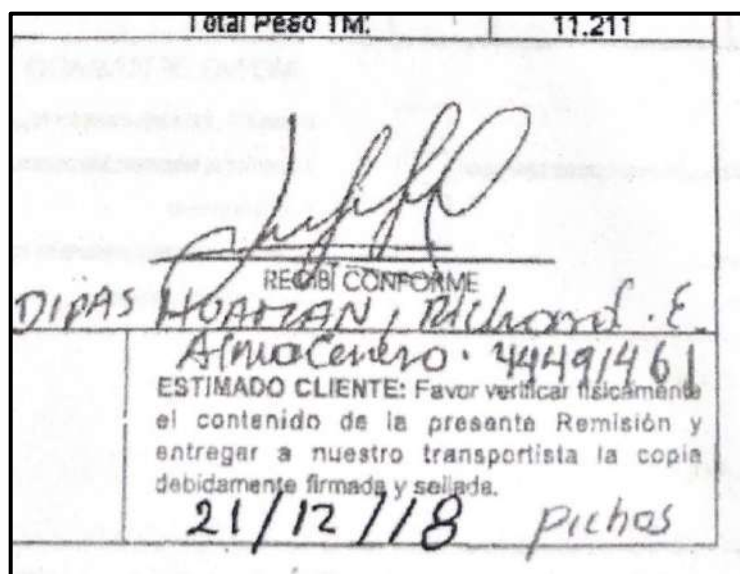 Total Peso TM: 11.211
RECIBÍ CONFORME
DIPAS HUAMAN, Richard. E.
Almacenero. 44491461
ESTIMADO CLIENTE: Favor verificar físicamente
el contenido de la presente Remisión y
entregar a nuestro transportista la copia
debidamente firmada y sellada.
21/12/18 pichos